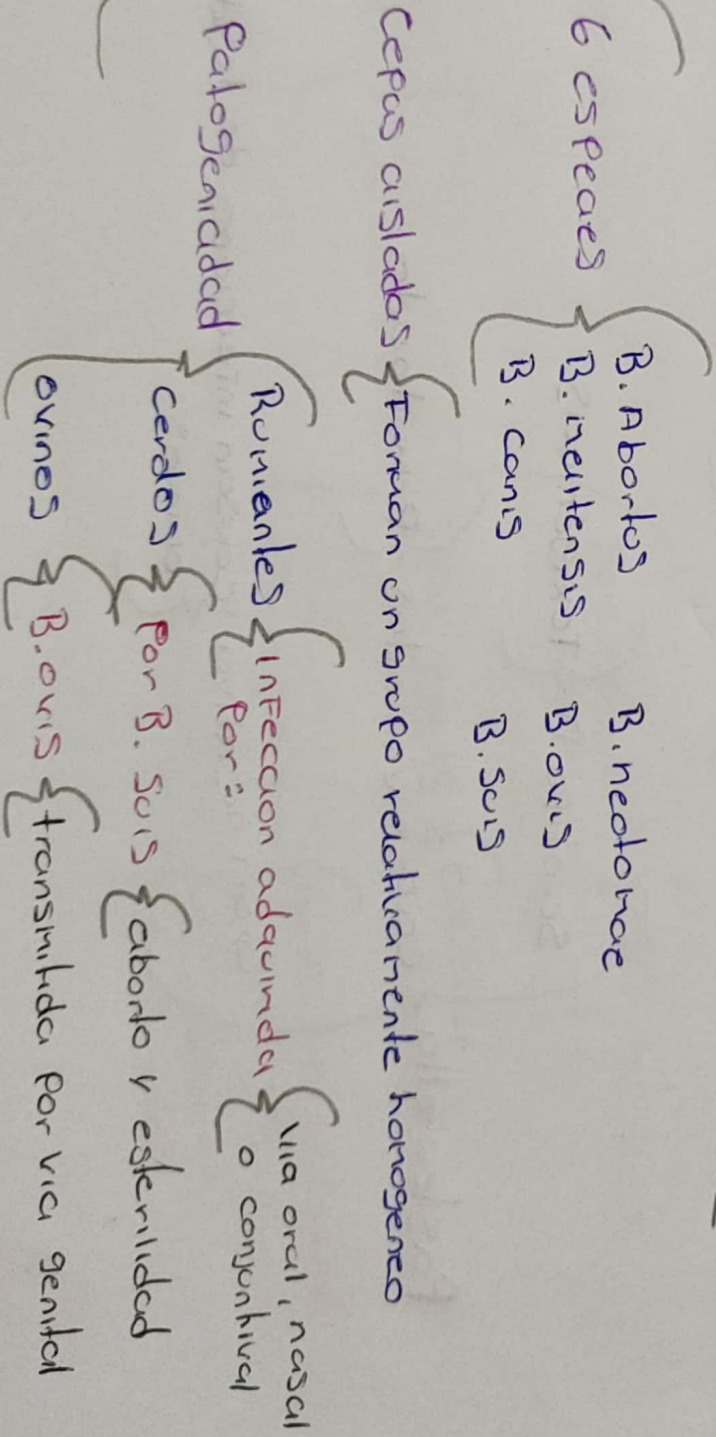 6 especies
B. Abortos B. neotomae
B. melitensis B. ovis
B. canis B. suis
Cepas aisladas
Forman un grupo relativamente homogeneo
Patogenicidad
Rumiantes
Infeccion adquirida
por:
via oral, nasal
o conjuntival
Cerdos
Por B. suis
aborto y esterilidad
ovinos
B. ovis
transmitida por via genital